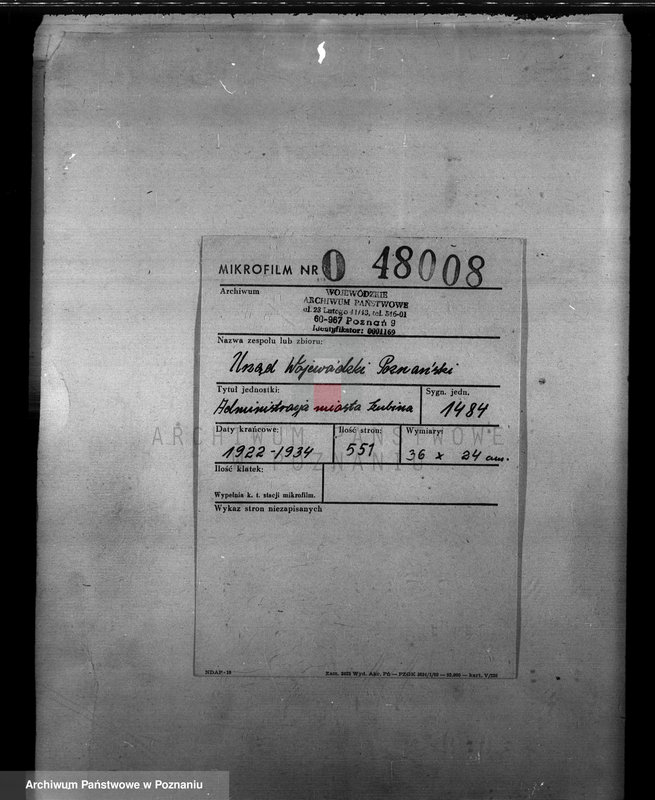 MIKROFILM NR 0 48008
Archiwum
WOJEWÓDZKIE
ARCHIWUM PAŃSTWOWE
ul. 23 Lutego 41/43, tel. 546-01
60-967 Poznań 9
Identyfikator: 0001169
Nazwa zespołu lub zbioru:
Urząd Wojewódzki Poznański
Tytuł jednostki:
Sygn. jedn.
Administracja miasta Łubina
1484
Daty krańcowe:
Ilość stron:
Wymiary:
1922-1934
551
36 x 24 cm.
ARCHIWUM PAŃSTWOWE
W POZNANIU
Ilość klatek:
Wypełnia k. t. stacji mikrofilm.
Wykaz stron niezapisanych
NDAP-19
Archiwum Państwowe w Poznaniu